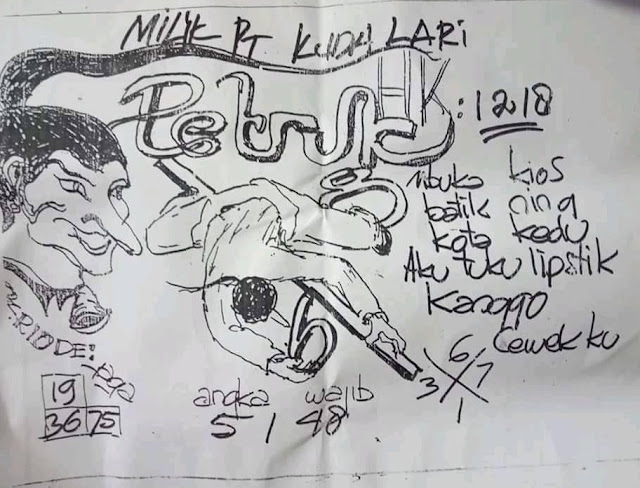 MILIK PT KUDA LARI
Petruk
HK: 1218
Mbuka kios
batik ning
kota kedu
Aku tuku lipstik
Kanggo
Cewekku
PERIODE:
19
36 75
angka wajib
5 1 48
6
3 X 7
1